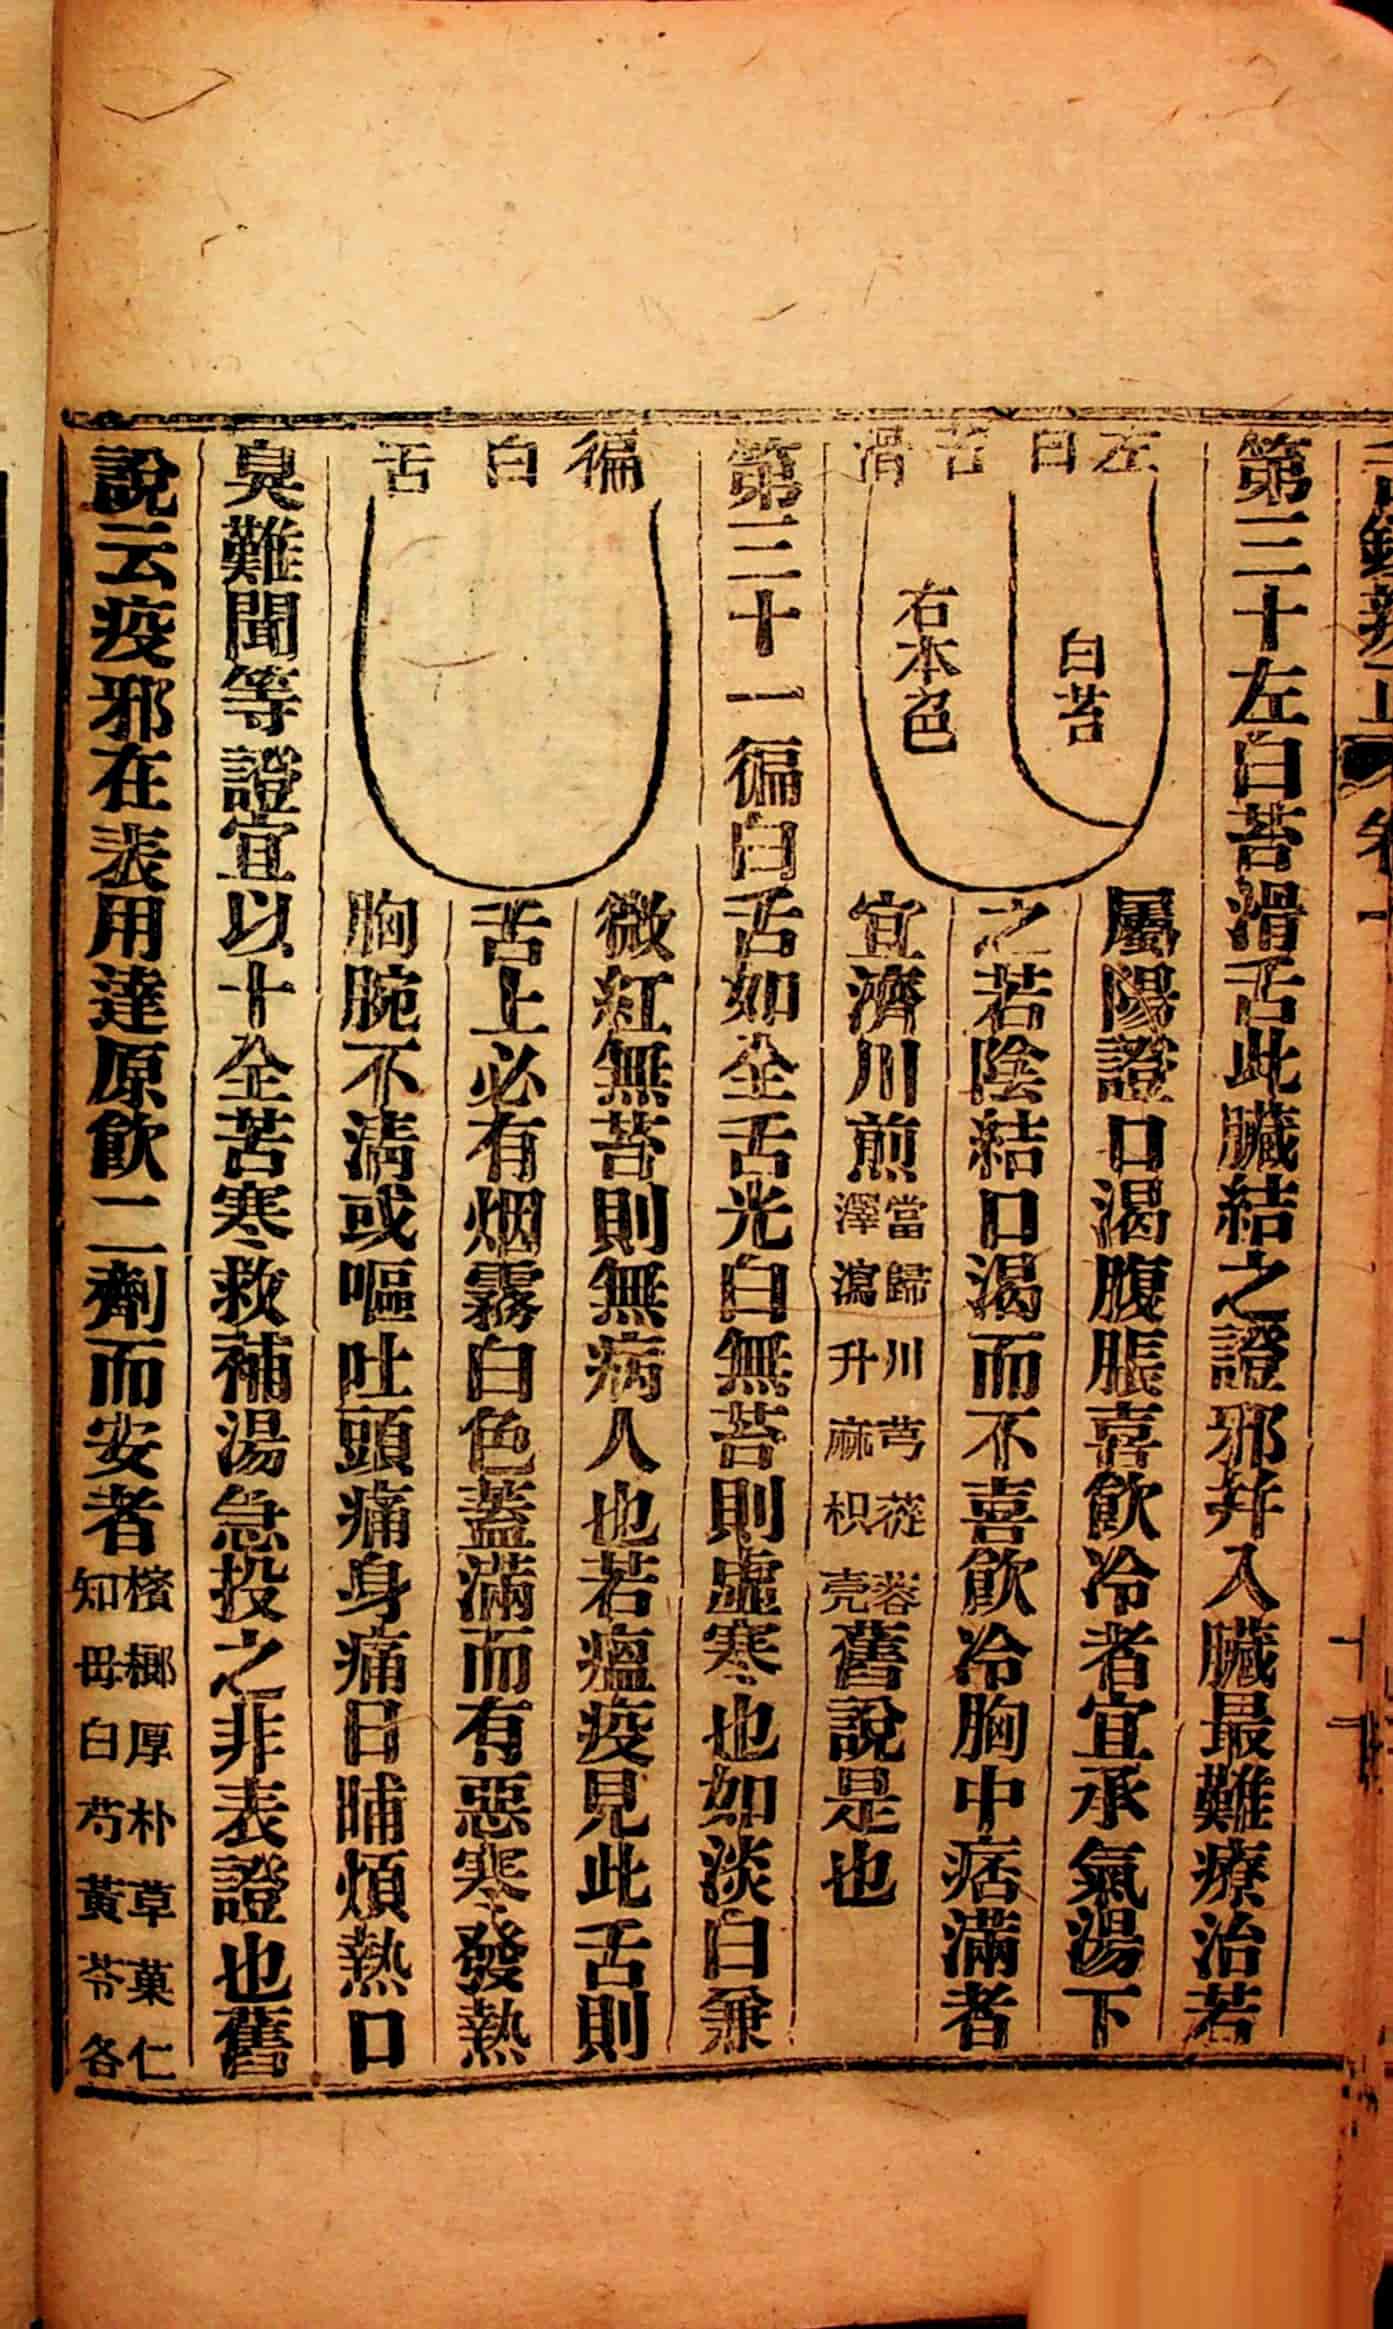 第三十左白苔滑舌此臟結之證邪幷入臟最難療治若
左白苔滑
白苔
右本色
屬陽證口渴腹脹喜飲冷者宜承氣湯下
之若陰結口渴而不喜飲冷胸中痞滿者
宜濟川煎當歸川芎蓯蓉澤瀉升麻枳壳舊說是也
第三十一徧白舌如全舌光白無苔則虛寒也如淡白兼
徧白舌
微紅無苔則無病人也若瘟疫見此舌則
舌上必有烟霧白色蓋滿而有惡寒發熱
胸腕不淸或嘔吐頭痛身痛日晡煩熱口
臭難聞等證宜以十全苦寒救補湯急投之非表證也舊
說云疫邪在表用達原飲二劑而安者檳榔厚朴草菓仁知毋白芍黃芩各